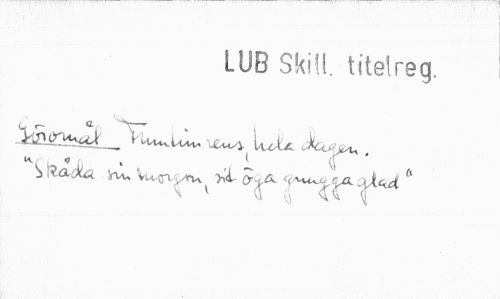 LUB Skill. titelreg.
Göromål Fruntimrens, hela dagen.
"Skåda sin morgon, sit öga gnugga glad"